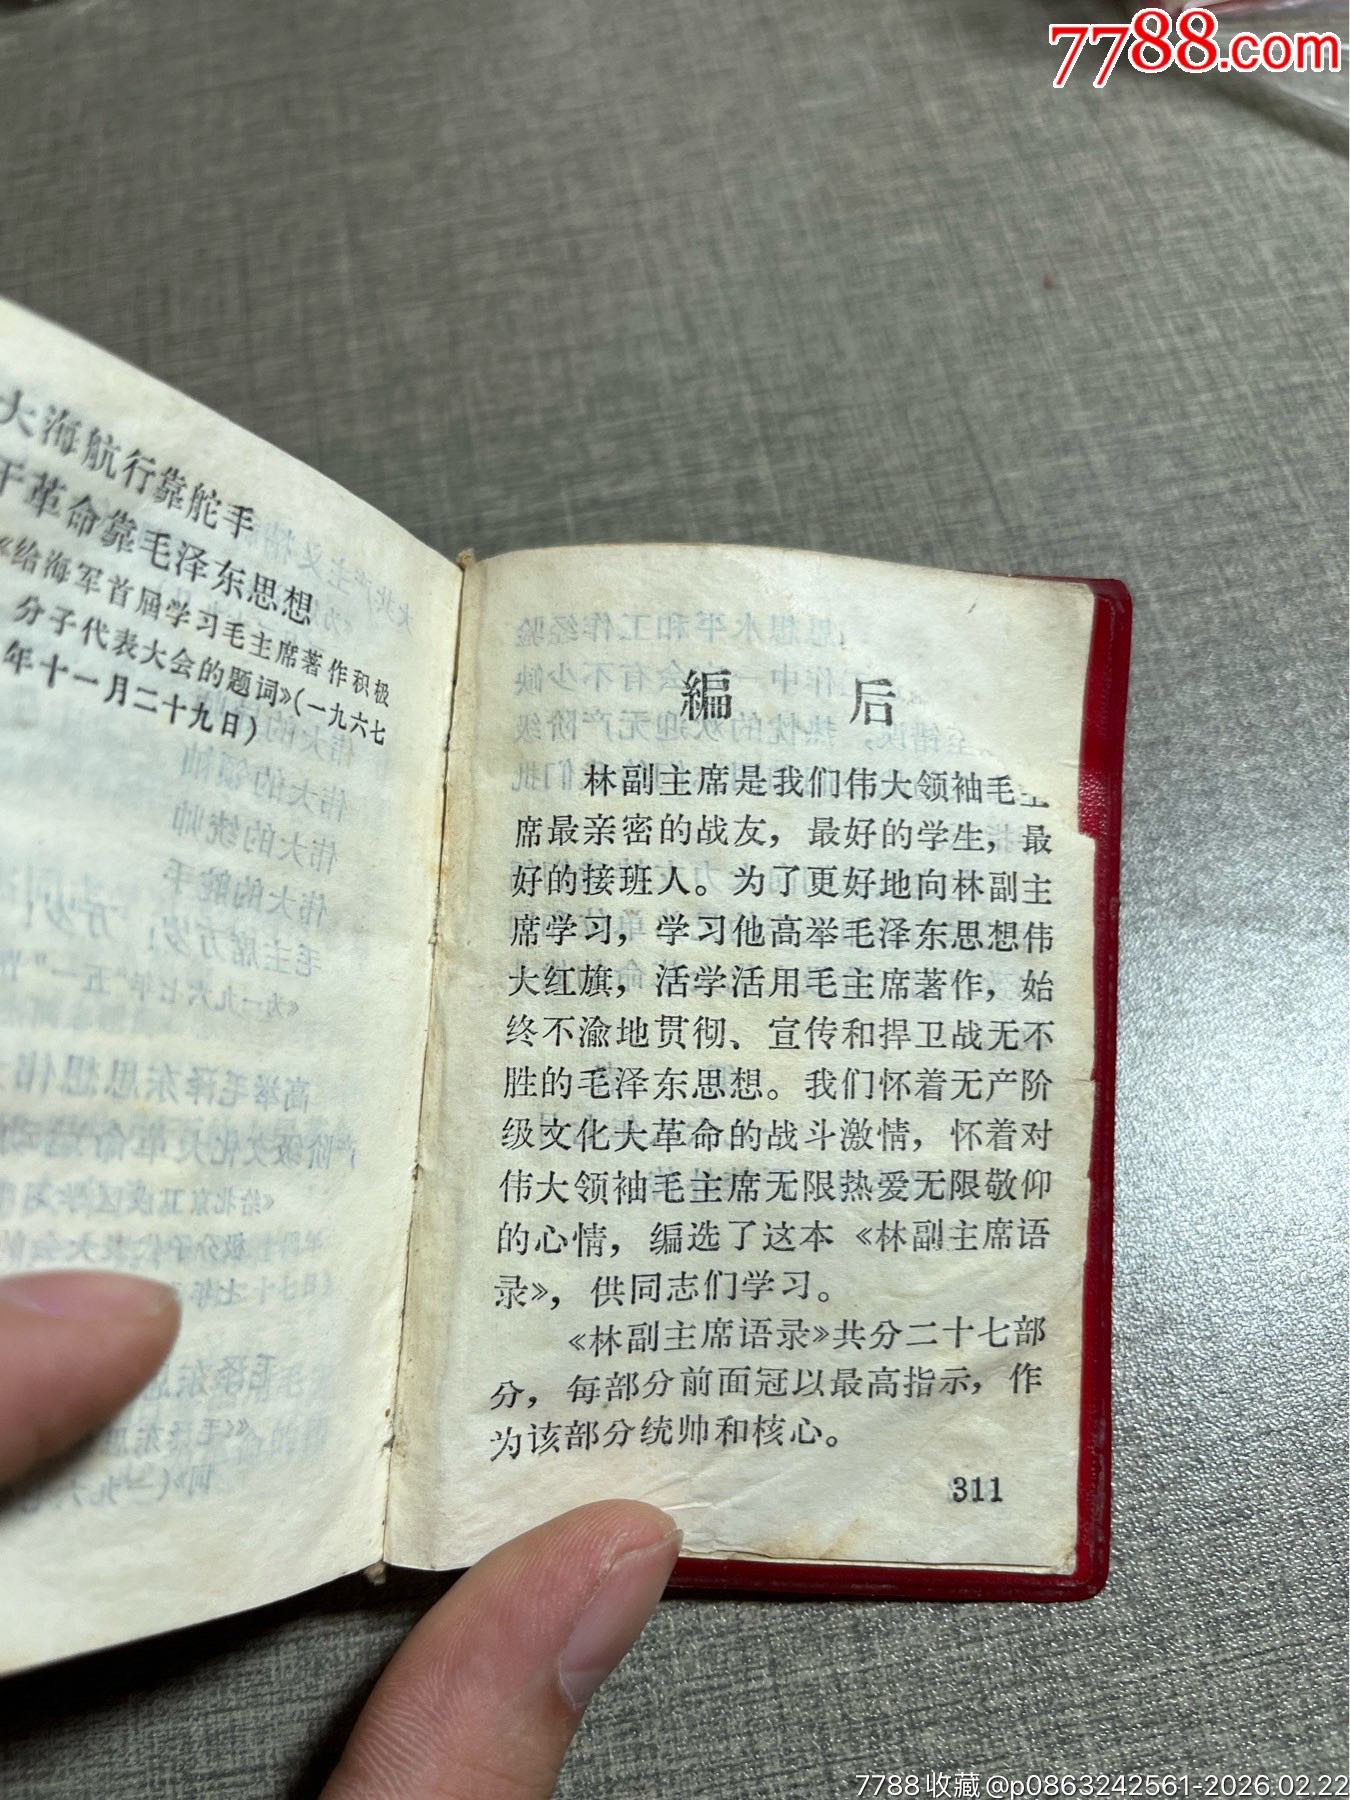 7788.com
大海航行靠舵手
干革命靠毛泽东思想
《给海军首届学习毛主席著作积极
分子代表大会的题词》(一九六七
年十一月二十九日)
编 后
林副主席是我们伟大领袖毛主
席最亲密的战友，最好的学生，最
好的接班人。为了更好地向林副主
席学习，学习他高举毛泽东思想伟
大红旗，活学活用毛主席著作，始
终不渝地贯彻、宣传和捍卫战无不
胜的毛泽东思想。我们怀着无产阶
级文化大革命的战斗激情，怀着对
伟大领袖毛主席无限热爱无限敬仰
的心情，编选了这本《林副主席语
录》，供同志们学习。
《林副主席语录》共分二十七部
分，每部分前面冠以最高指示，作
为该部分统帅和核心。
311
7788收藏@p0863242561-2026.02.22